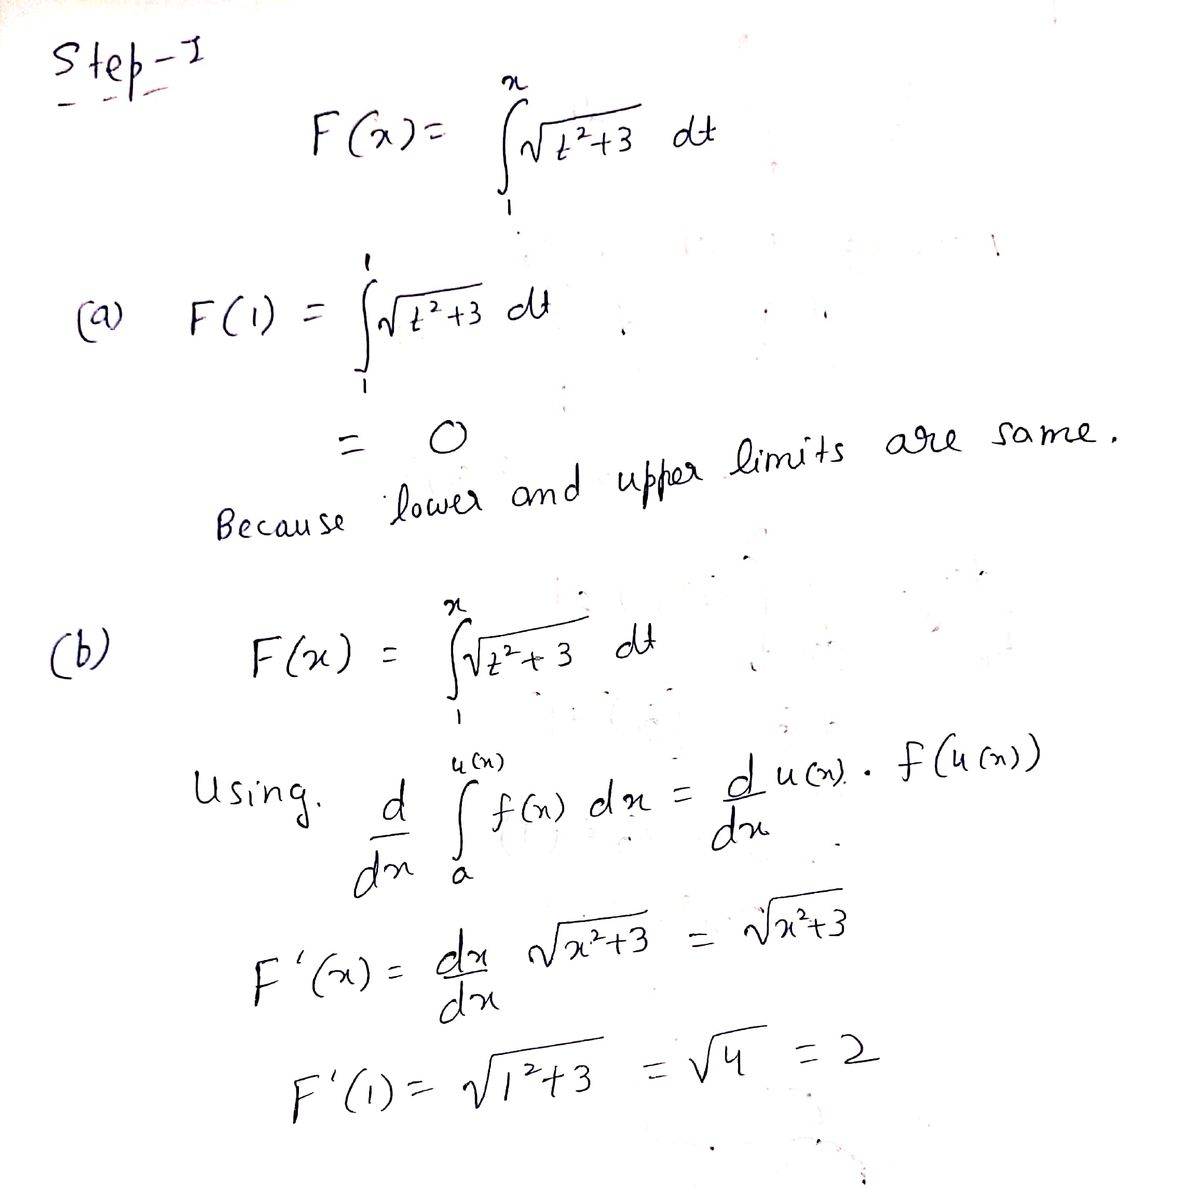 Step-I
F(x) = ∫₁ˣ √(t²+3) dt
(a) F(1) = ∫₁¹ √(t²+3) dt
= 0
Because lower and upper limits are same.
(b) F(x) = ∫₁ˣ √(t²+3) dt
Using. d/dx ∫ₐ^u(x) f(x) dx = d/dx u(x) . f(u(x))
F'(x) = dx/dx √(x²+3) = √(x²+3)
F'(1) = √(1²+3) = √4 = 2